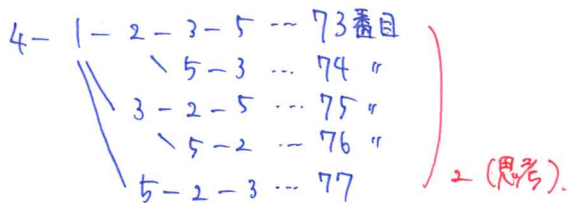 4 - 1 - 2 - 3 - 5 … 73番目
5 - 3 … 74 〃
3 - 2 - 5 … 75 〃
5 - 2 … 76 〃
5 - 2 - 3 … 77
2 (思考).